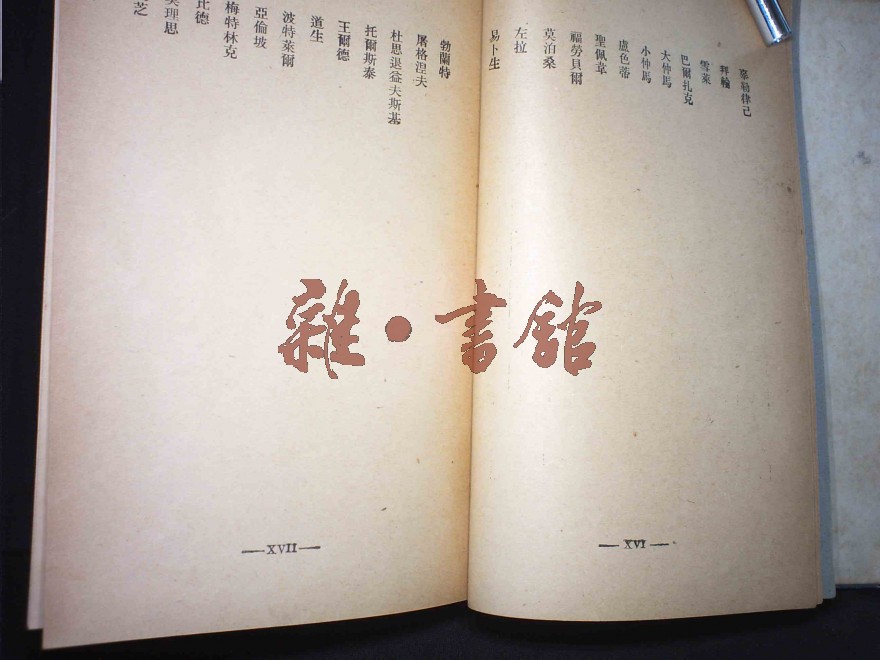 辜勒律己
拜輪
雪萊
巴爾扎克
大仲馬
小仲馬
盧色蒂
聖佩韋
福勞貝爾
莫泊桑
左拉
易卜生
—XVI—
勃蘭特
屠格涅夫
杜思退益夫斯基
托爾斯泰
王爾德
道生
波特萊爾
亞倫坡
梅特林克
比德
理思
芝
—XVII—
雜·書館